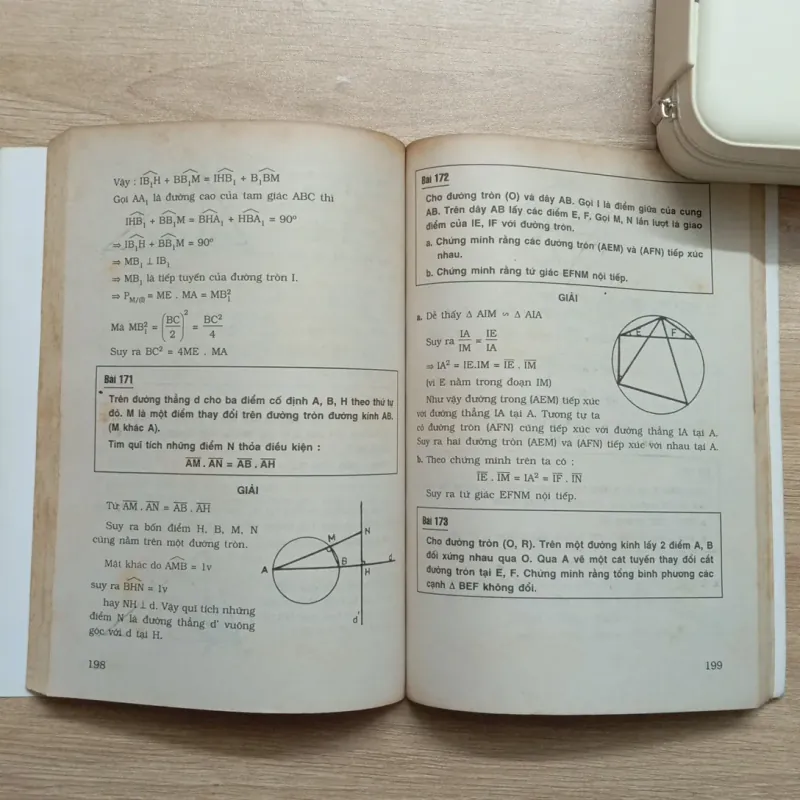 Vậy : IB₁H + BB₁M = IHB₁ + B₁BM
Gọi AA₁ là đường cao của tam giác ABC thì
IHB₁ + BB₁M = BHA₁ + HBA₁ = 90°
⇒ IB₁H + BB₁M = 90°
⇒ MB₁ ⊥ IB₁
⇒ MB₁ là tiếp tuyến của đường tròn I.
⇒ P_M/(I) = ME . MA = MB₁²
Mà MB₁² = (BC/2)² = BC²/4
Suy ra BC² = 4ME . MA
Bài 171
Trên đường thẳng d cho ba điểm cố định A, B, H theo thứ tự
đó. M là một điểm thay đổi trên đường tròn đường kính AB.
(M khác A).
Tìm quĩ tích những điểm N thỏa điều kiện :
AM . AN = AB . AH
GIẢI
Từ AM . AN = AB . AH
Suy ra bốn điểm H, B, M, N
cùng nằm trên một đường tròn.
Mặt khác do AMB = 1v
suy ra BHN = 1v
hay NH ⊥ d. Vậy quĩ tích những
điểm N là đường thẳng d' vuông
góc với d tại H.
M
N
A
B
H
d
d'
198
Bài 172
Cho đường tròn (O) và dây AB. Gọi I là điểm giữa của cung
AB. Trên dây AB lấy các điểm E, F, Gọi M, N lần lượt là giao
điểm của IE, IF với đường tròn.
a. Chứng minh rằng các đường tròn (AEM) và (AFN) tiếp xúc
nhau.
b. Chứng minh rằng tứ giác EFNM nội tiếp.
GIẢI
a. Dễ thấy Δ AIM ∽ Δ AIA
Suy ra IA/IM = IE/IA
⇒ IA² = IE.IM = IE . IM
(vì E nằm trong đoạn IM)
Như vậy đường trong (AEM) tiếp xúc
với đường thẳng IA tại A. Tương tự ta
có đường tròn (AFN) cũng tiếp xúc với đường thẳng IA tại A.
Suy ra hai đường tròn (AEM) và (AFN) tiếp xúc với nhau tại A.
E
F
b. Theo chứng minh trên ta có :
IE . IM = IA² = IF . IN
Suy ra tứ giác EFNM nội tiếp.
Bài 173
Cho đường tròn (O, R). Trên một đường kính lấy 2 điểm A, B
đối xứng nhau qua O. Qua A vẽ một cát tuyến thay đổi cắt
đường tròn tại E, F. Chứng minh rằng tổng bình phương các
cạnh Δ BEF không đổi.
199